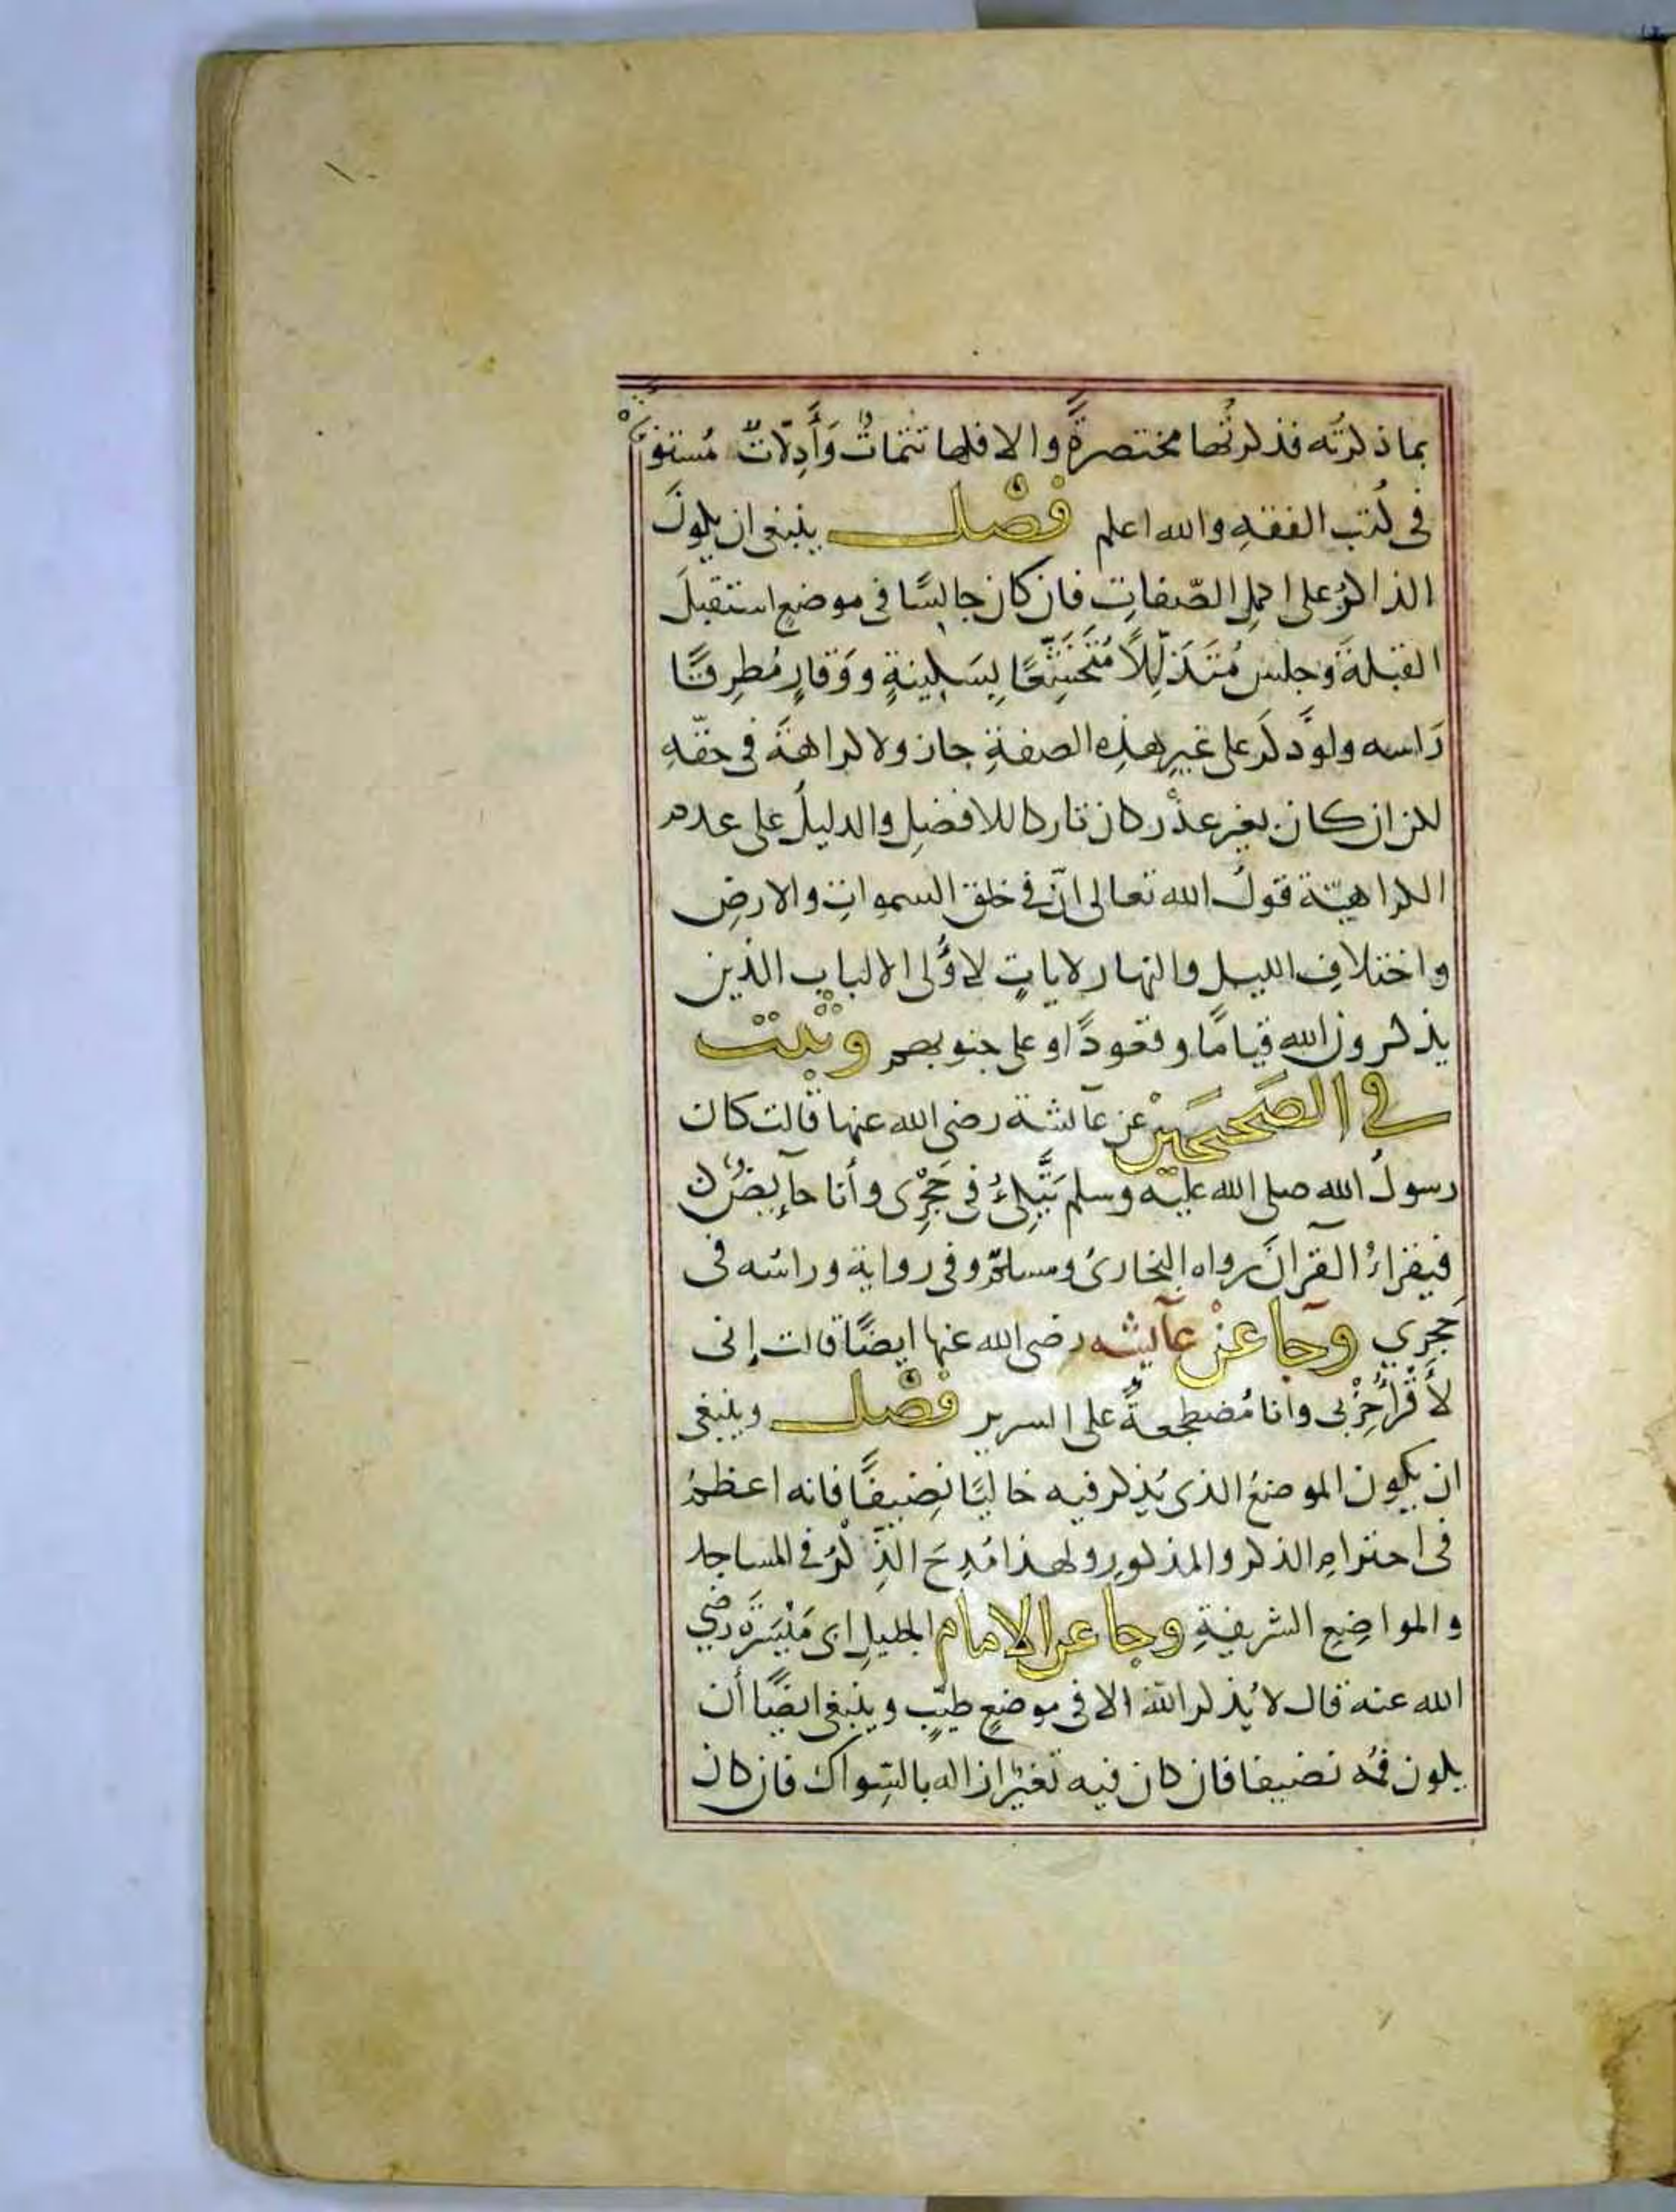 بما ذكرتُه فذكرتُها مختصرةً والا فلها تتماتٌ وَأَدِلّاتٌ مُستوفَاةٌ
فى كُتب الفقهِ والله اعلم فَصْل ينبغى ان يكونَ
الذاكرُ على اكملِ الصّفاتِ فان كان جالسًا فى موضعٍ استقبلَ
القبلةَ وجلس مُتَذَلِّلًا مُتَخَشِّعًا بِسَكِينةٍ ووَقارٍ مُطرِقًا
رَاسه ولو ذكَرَ على غيرِ هذِه الصفةِ جاز ولا كراهةَ فى حقّهِ
لكن ان كان بغير عذْر كان تاركا للافضلِ والدليلُ على عدم
الكراهيّة قولُ الله تعالى انّ فى خلق السمواتِ والارضِ
واختلافِ الليل والنهار لاياتٍ لاُولى الالباب الذين
يذكرون الله قيامًا وقعودًا وعلى جنوبهم وثبت
في الصَحيحَيْن عن عآئشة رضى الله عنها قالت كان
رسولُ الله صلى الله عليه وسلم يَتَّكِئُ فى حَجْرِى وأنا حآيضٌ
فيقراءُ القرآنَ رواه البخارىُ ومسلمٌ وفى رواية وراسُه فى
حَجرِي وجآ عنْ عآيشه رضى الله عنها ايضًا قالت إنى
لأَقْرأُ حِزْبى وانا مُضطجعةٌ على السرير فَصْل وينبغى
ان يكون الموضعُ الذى يُذكر فيه خاليًا نضيفًا فانه اعظمُ
فى احترامِ الذكر والمذكورِ ولهذا مُدِحَ الذِّكْرُ فى المساجد
والمواضِعِ الشريفةِ وجا عن الامام الجليلِ ابى مَيْسَرَةَ رضي
الله عنه قال لا يُذكر اللهُ الا فى موضعٍ طيّبٍ وينبغى ايضًا أن
يكون فمُه نضيفا فان كان فيه تغيّرٌ ازاله بالسِّواك فان كان